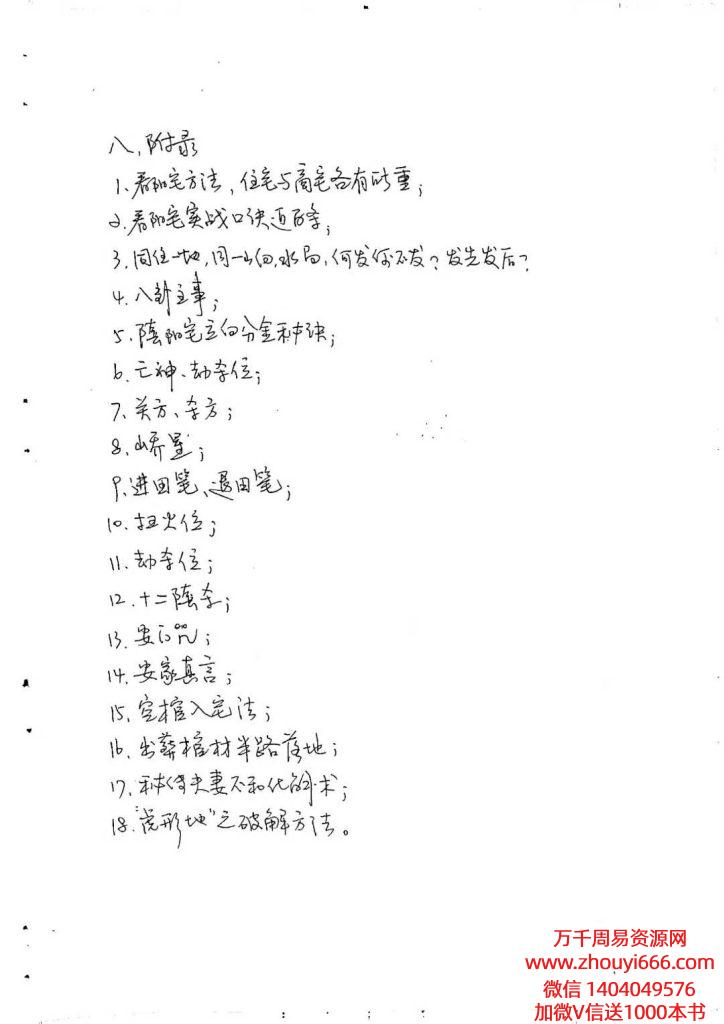 八、附录
1、看阳宅方法,住宅与商宅各有所重;
2、看阳宅实战口诀近百条;
3、同住一地,同一山向、水局,何发何不发?发先发后?
4、八卦主事;
5、阴阳宅立向分金秘诀;
6、亡神、劫杀位;
7、关方、杀方;
8、
9、进田笔、退田笔;
10、扫火位;
11、劫杀位;
12、十二阴杀;
13、安门咒;
14、安家真言;
15、空棺入宅法;
16、出葬棺材半路落地;
17、秘传夫妻不和化的术;
18、"虎形地"之破解方法。
万千周易资源网
www.zhouyi666.com
微信 1404049576
加微V信送1000本书